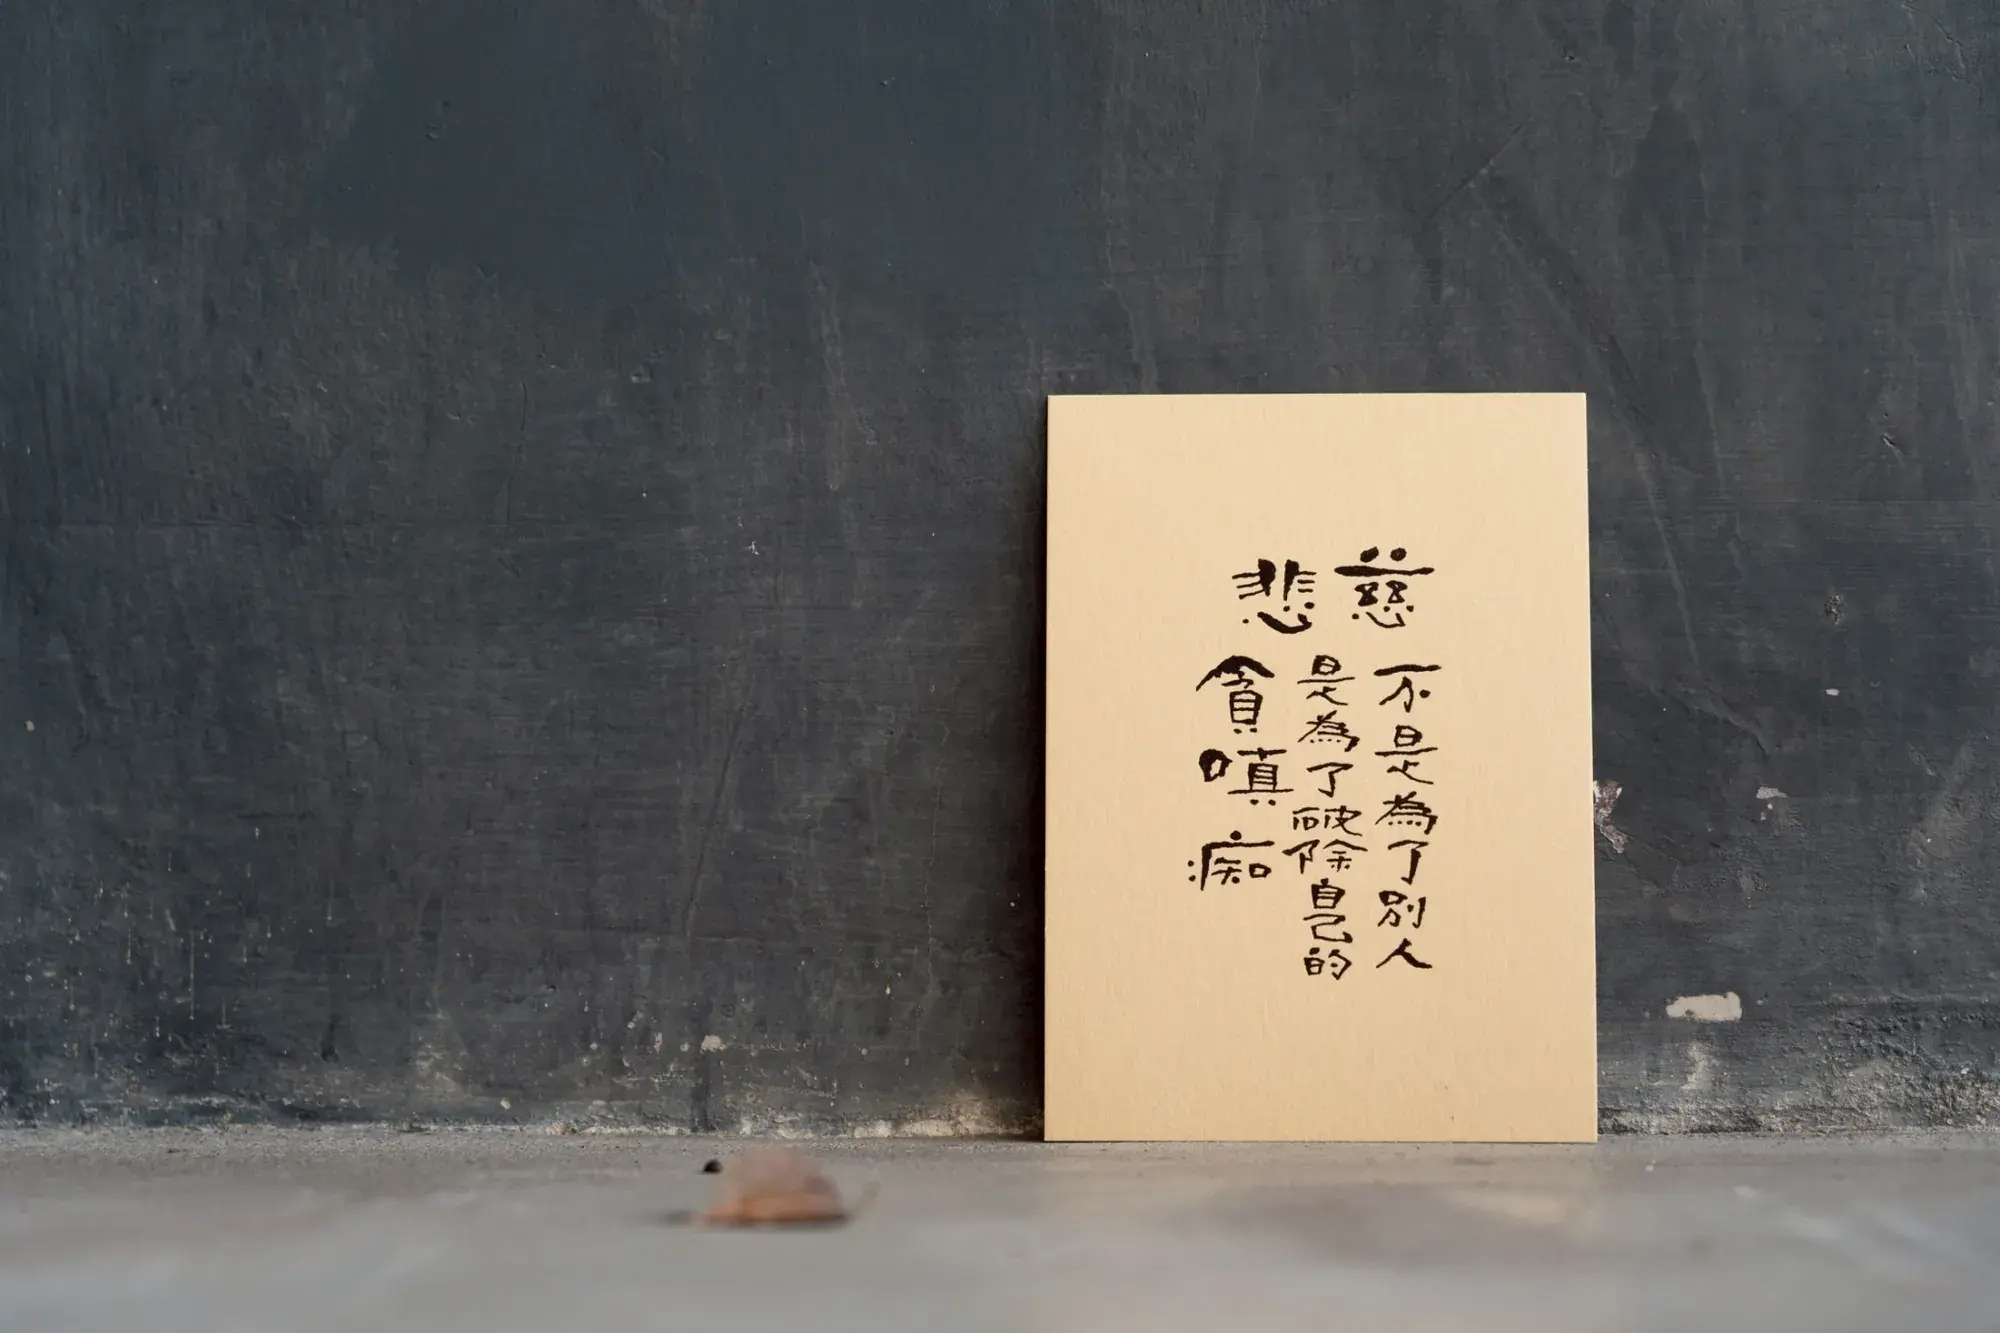 慈悲
不是為了別人
是為了破除自己的
貪嗔痴